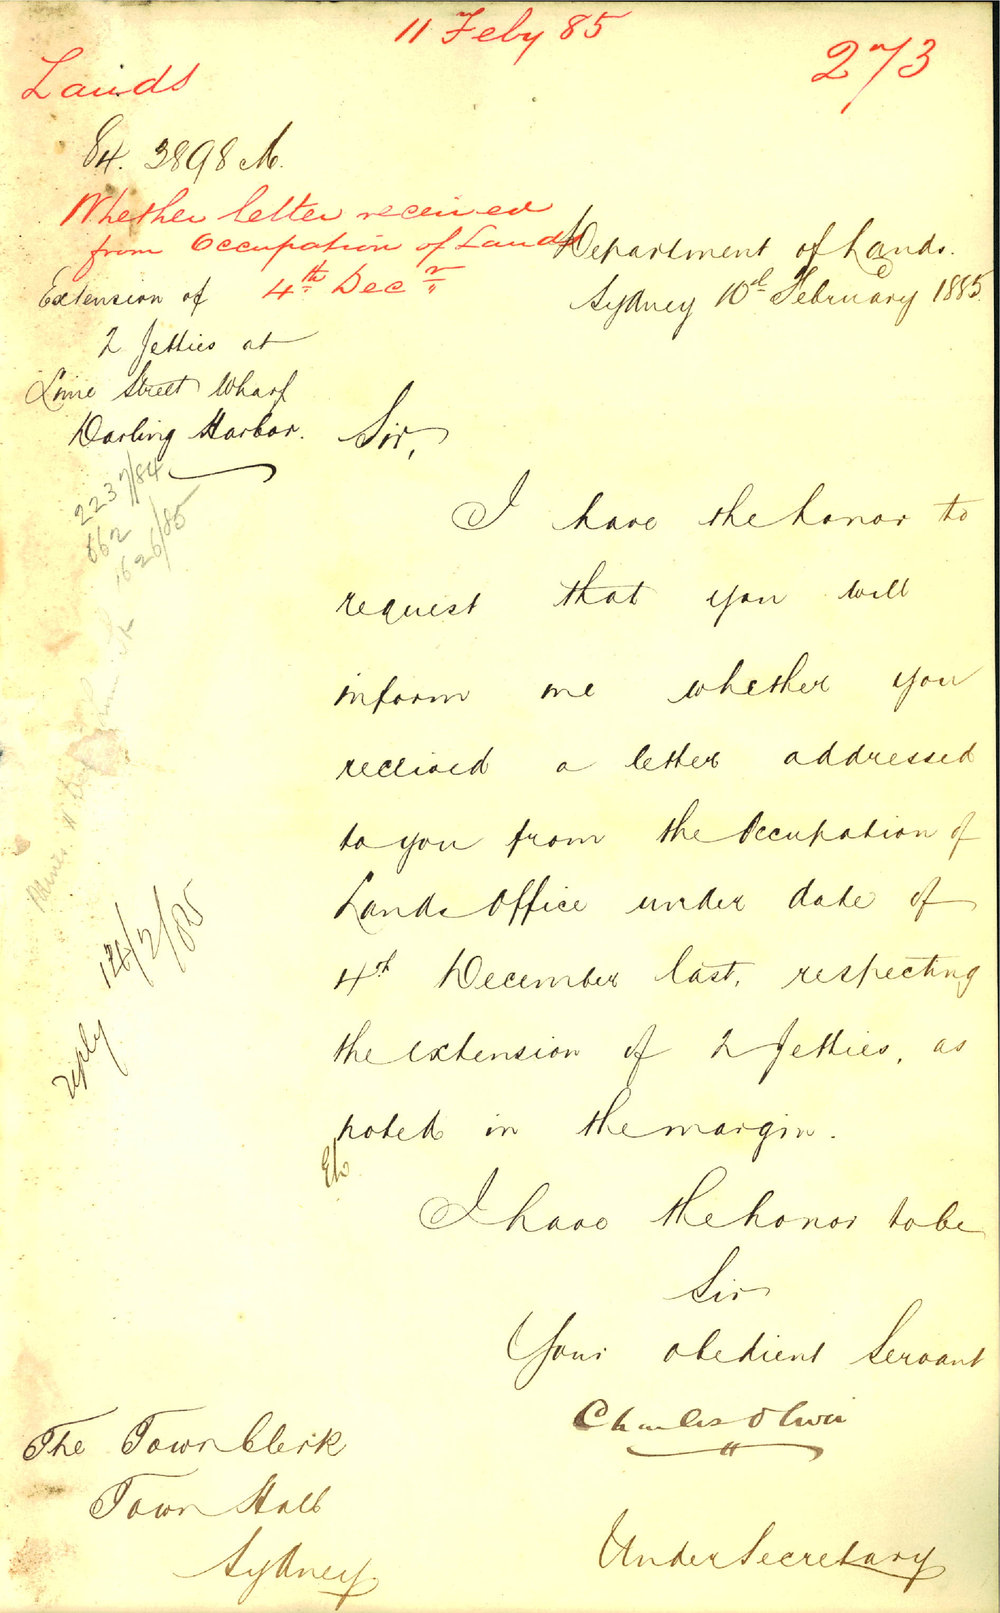 11 Feby 85
273
Lands
84. 3898 M.
Whether letter received
from Occupation of Lands
4th Decr
Department of Lands.
Sydney 10th February 1885.
Extension of
2 Jetties at
Lime Street Wharf
Darling Harbor.
2237/84
662
1626/85
Sir,
I have the honor to
request that you will
inform me whether you
received a letter addressed
to you from the Occupation of
Lands Office under date of
4th December last, respecting
the extension of 2 Jetties, as
noted in the margin.
reply
I have the honor to be
Sir
Your obedient Servant
Charles Oliver
Under Secretary
The Town Clerk
Town Hall
Sydney.